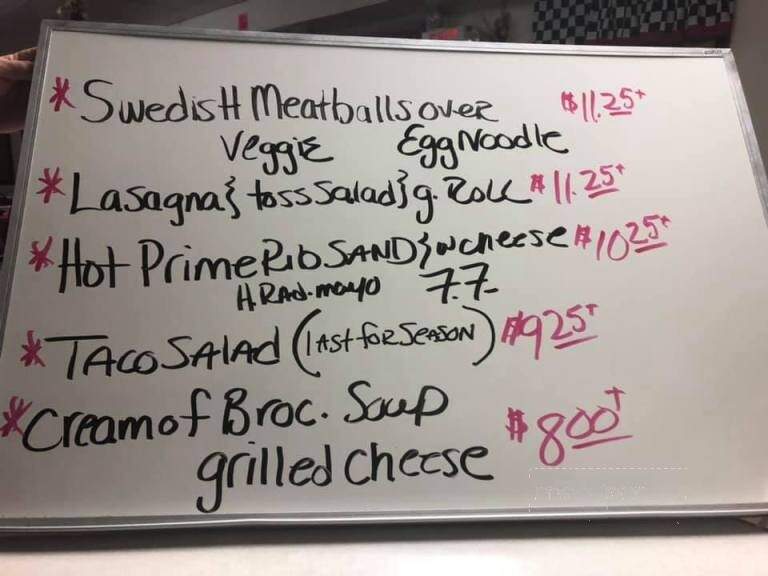 * Swedish Meatballs over $11.25+
Veggie Egg Noodle
* Lasagna } toss Salad } g. Roll $11.25+
* Hot Prime Rib SAND } w cheese $10.25+
H. RAd. mayo F.F.
* TACO SALAD (lAst for SEASON) $9.25+
* Cream of Broc. Soup $8.00+
grilled cheese